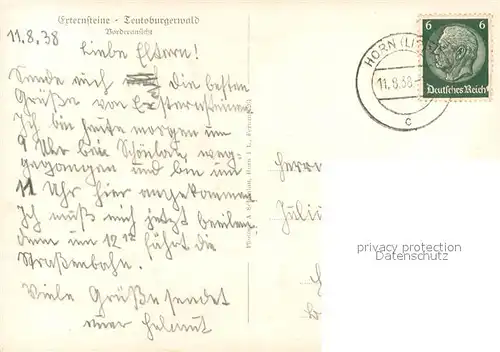 Externsteine - Teutoburgerwald
Vorderansicht
11.8.38
Liebe Eltern!
Sende euch die besten
Grüße von Externsteine.
Ich bin heute morgen um
9 Uhr bei weg-
gegangen und bin um
11 Uhr hier angekommen.
Ich muß mich jetzt beeilen
denn um 12 fährt die
Straßenbahn.
Viele Grüße sendet
euer Helmut
HORN (LIPPE)
11.8.38
c
6 6
Deutsches Reich
Herrn
privacy protection
Datenschutz